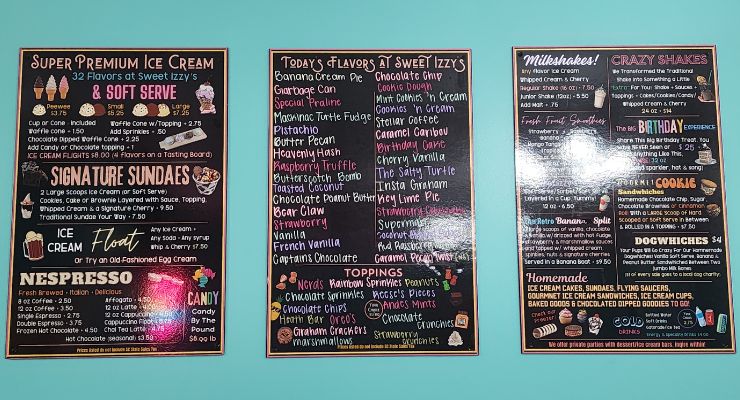 SUPER PREMIUM ICE CREAM
32 Flavors at Sweet Izzy's
& SOFT SERVE
Peewee $3.75
Small $5.25
Large $7.25
Cup or Cone - Included
Waffle Cone w/Topping • 2.75
Waffle cone • 1.50
Add Sprinkles • .50
Chocolate Dipped Waffle Cone • 2.25
Add Candy or Chocolate topping • 1
ICE CREAM FLIGHTS $8.00 (4 Flavors on a Tasting Board)
SIGNATURE SUNDAES
2 Large Scoops Ice Cream (or Soft Serve)
Cookies, Cake or Brownie Layered with Sauce, Topping,
Whipped Cream & a Signature Cherry • 9.50
Traditional Sundae Your Way • 7.50
ICE CREAM Float
Any Ice Cream +
Any Soda • Any Syrup
Whip & Cherry • $7.50
Or Try an Old-Fashioned Egg Cream
NESPRESSO
Fresh Brewed • Italian • Delicious
8 oz Coffee • 2.50
12 oz Coffee • 3.50
Single Espresso • 2.75
Double Espresso • 3.75
Frozen Hot Chocolate • 4.50
Affogato • 4.50
12 oz Latte
12 oz Cappuccino
Cappuccino
Chai Tea Latte • 4.75
Hot Chocolate (seasonal) • 3.50
CANDY
Candy
By The
Pound
$8.99 lb
Prices listed do not include SC State Sales Tax
Today's Flavors at Sweet Izzy's
Banana Cream Pie
Garbage Can
Special Praline
Mackinac Turtle Fudge
Pistachio
Butter Pecan
Heavenly Hash
Raspberry Truffle
Butterscotch Bomb
Toasted Coconut
Chocolate Peanut Butter
Bear Claw
Strawberry
Vanilla
French Vanilla
Captains Chocolate
Chocolate Chip
Cookie Dough
Mint Cookies 'n Cream
Cookies 'n Cream
Stellar Coffee
Caramel Caribou
Birthday Cake
Cherry Vanilla
The Salty Turtle
Insta Graham
Key Lime Pie
Strawberry
Superman
Coconut
Red Raspberry
Caramel Pecan
TOPPINGS
Nerds Rainbow Sprinkles Peanuts
Chocolate Sprinkles Reese's Pieces
Chocolate Chips Andes Mints
Heath Bar Oreo's Chocolate Crunchies
Graham Crackers
marshmallows
Strawberry Crunchies
Prices listed do not include SC State Sales Tax
Milkshakes!
Any Flavor Ice Cream
Whipped Cream & Cherry
Regular Shake (16 oz) • 7.50
Junior Shake (12oz) • 5.50
Add Malt • .75
Fresh Fruit Smoothies
12 oz • 6.50
Retro Banana Split
large scoops of vanilla, chocolate
& strawberry, drizzled with hot fudge,
strawberry & marshmallow sauces
and topped w/ whipped cream
sprinkles, nuts & signature cherries
Served in a Banana Boat • $9.50
CRAZY SHAKES
We Transformed the Traditional
Shake into Something a Little
"Extra" For You! Shake + Sauces +
Toppings + Cakes/Cookies/Candy/
Whipped Cream & Cherry
24 oz • $14
The Big BIRTHDAY EXPERIENCE
Share This Big Birthday Treat. You
've NEVER Seen or
Anything Like This,
$25
32 oz
sparkler, hat & song)
GOURMET COOKIE
Sandwiches
Homemade Chocolate Chip, Sugar,
Chocolate Brownies or Cinnamon
Roll With a LARGE Scoop of Hard
Scooped or Soft Serve in Between
& ROLLED IN A TOPPING • $7.50
DOGWHICHES $4
Your Pups Will Go Crazy For Our Homemade
DogWhiches! Vanilla Soft Serve, Banana &
Peanut Butter Sandwiched Between Two
Jumbo Milk Bones
($1 of every sale goes to a local dog charity)
Homemade
ICE CREAM CAKES, SUNDAES, FLYING SAUCERS,
GOURMET ICE CREAM SANDWICHES, ICE CREAM CUPS,
BAKED GOODS & CHOCOLATE DIPPED GOODIES TO GO!
Check our Freezer!
COLD DRINKS
Bottled Water
Soft Drinks
Gatorade/Ice Tea
Energy & Specialty Drinks $4.00
We offer private parties with dessert/ice cream bars, inquire within!